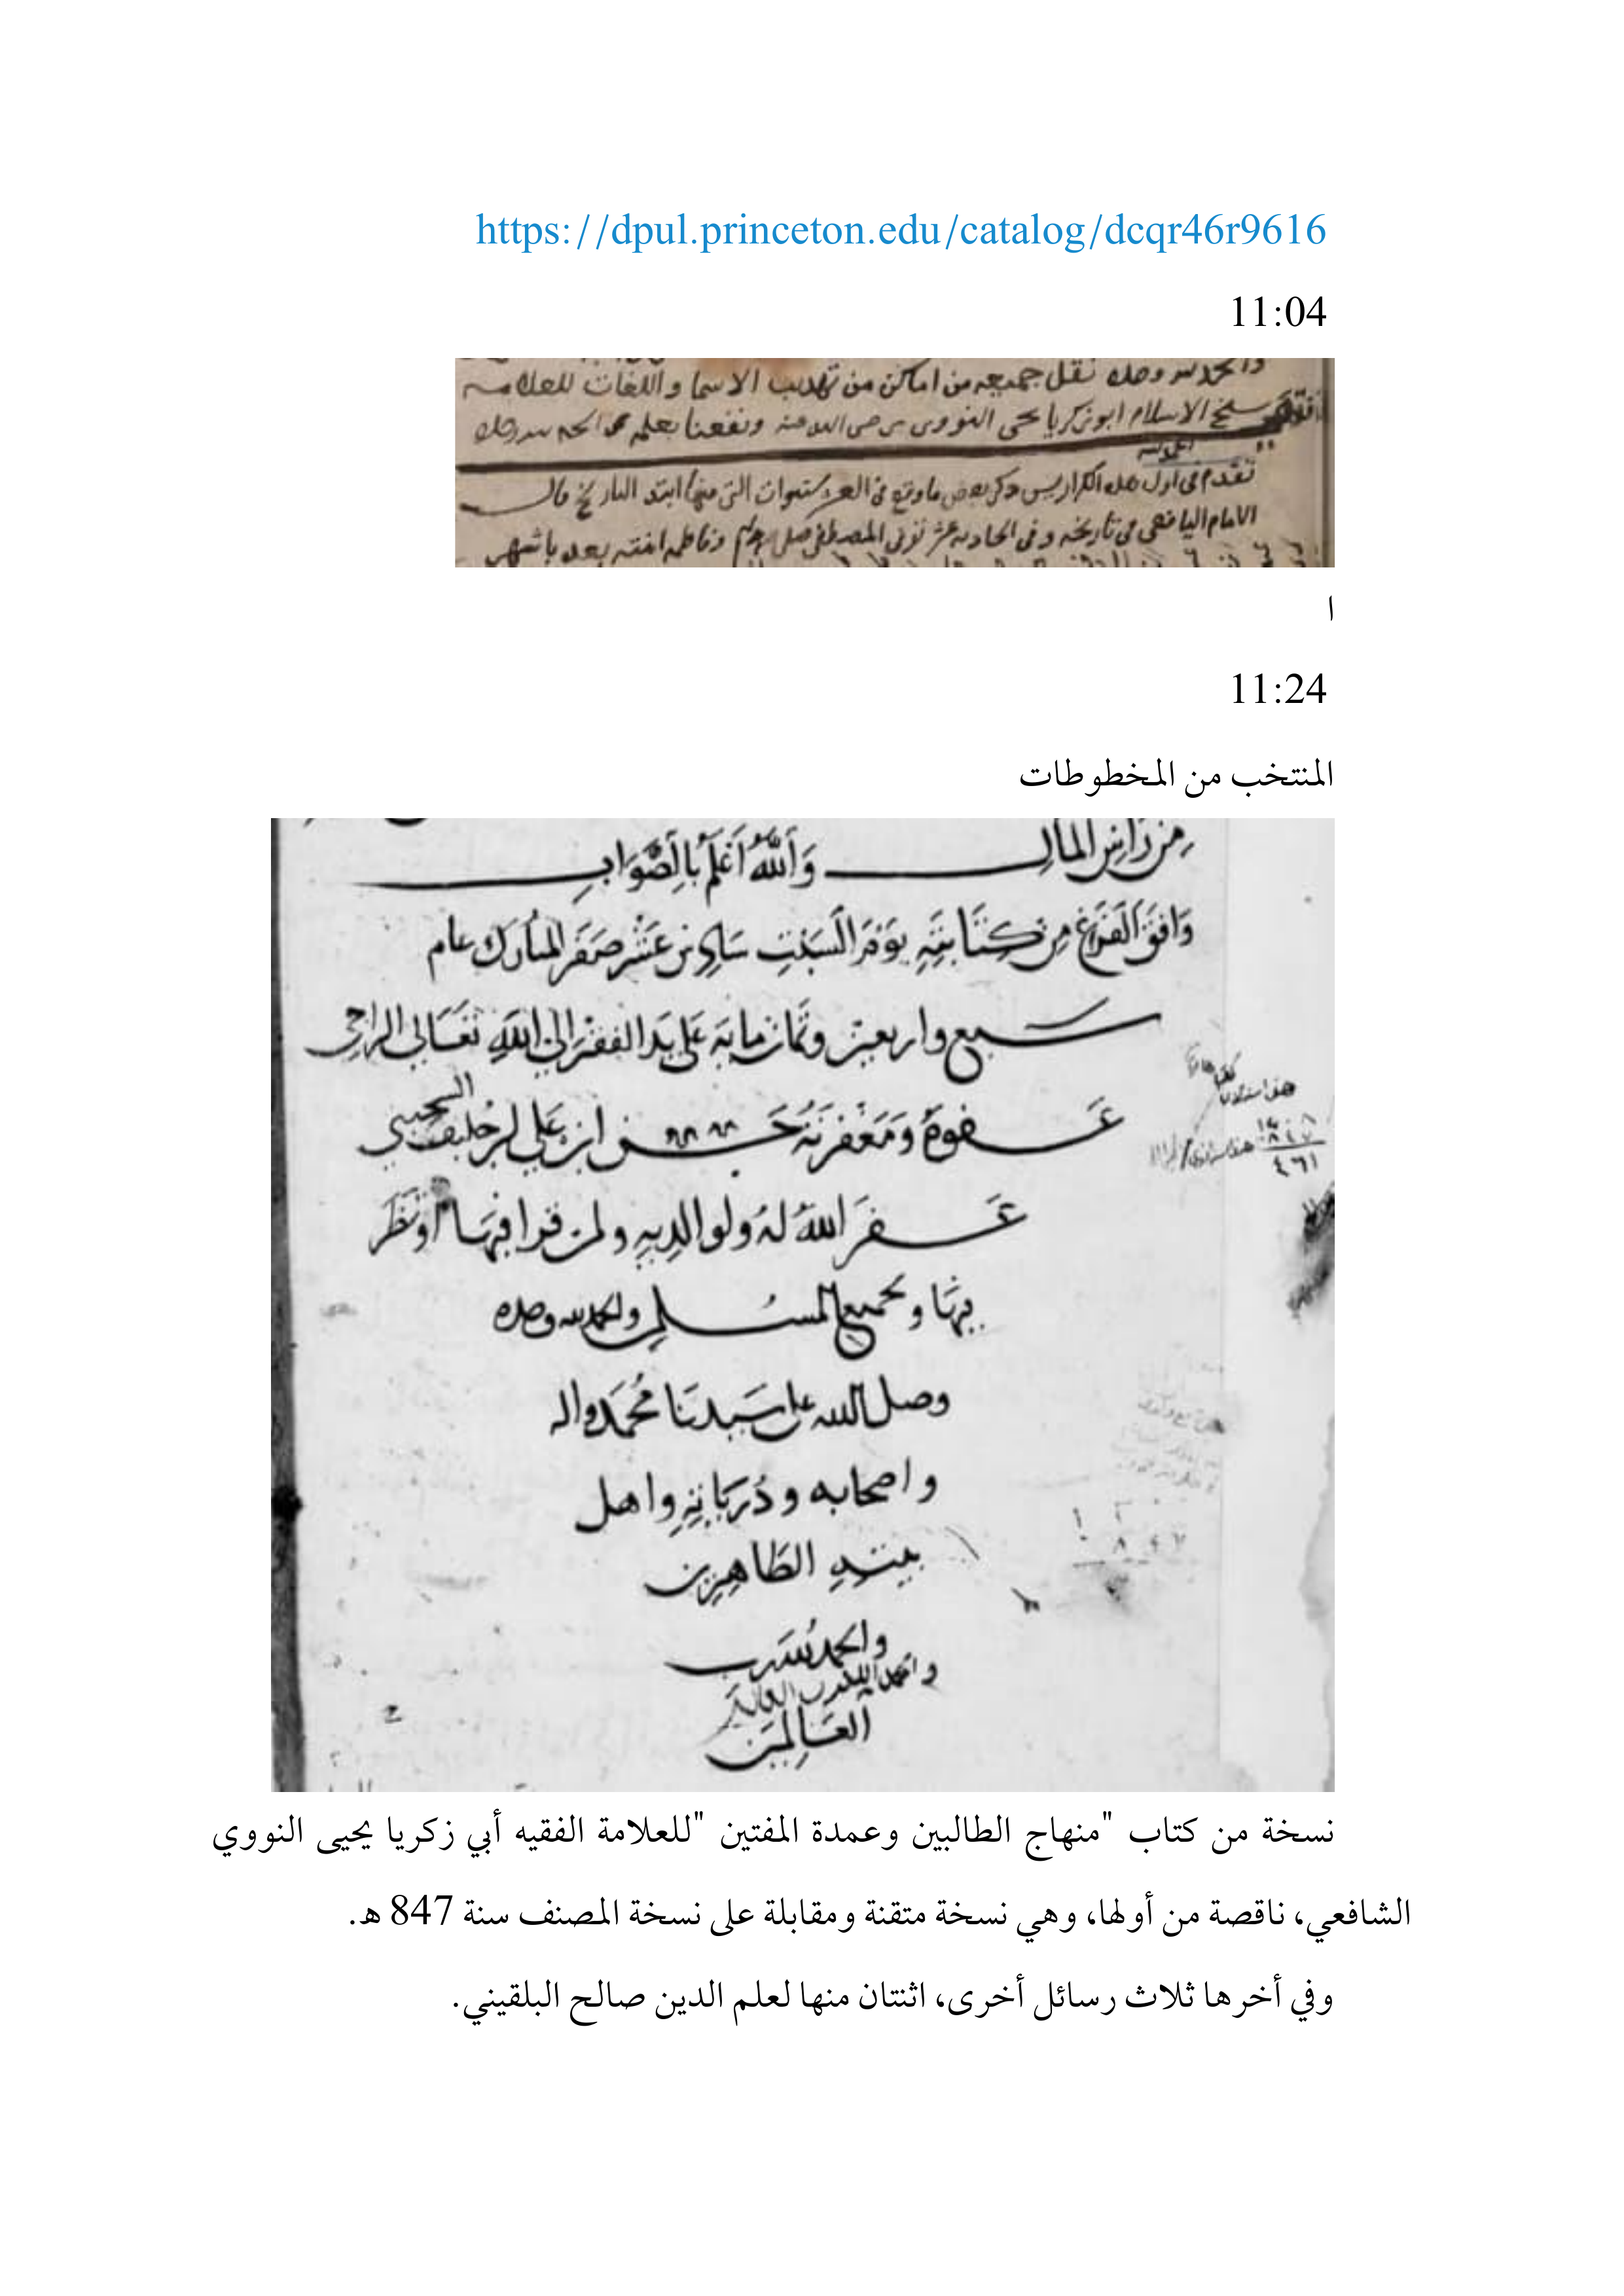 https://dpul.princeton.edu/catalog/dcqr46r9616
11:04
نقل جميعه من اماكن من تهذيب الاسما واللغات للعلامه
شيخ الاسلام ابو زكريا يحى النووى رضى الله عنه ونفعنا بعلمه
تقدم فى اول هذه الكراريس ذكر بعض ما وقع فى العشر سنوات التى منها ابتدا التاريخ قال
الامام اليافعى فى تاريخه وفى الحاديه عشر توفى المصطفى صلى وفاطمه ابنته بعده باشهر
ا
11:24
المنتخب من المخطوطات
مِن رَاسِ المَالِ وَاللَّهُ اَعْلَمُ بِالصَّوَابِ
وَافَقَ الفَرَاغ مِن كِتَابَتِهِ يَوْمَ السَّبْتِ سَادِس عَشْر صَفَر المُبَارَك عام
سبع واربعين وثمان مايه عَلى يَد الفقير الى اللَّه تَعَالى الراجى
عَفوهُ وَمَغْفِرَتَهُ حَسن ابن عَلى بن خليف
غَفَرَ اللَّهُ لَهُ ولوالديهِ ولمن قرا فِيهَا اَو نَظَرَ
فِيهَا ولجميع المسلمين والحمد لله وحده
وصلى الله على سَيدنَا مُحَمَد واله
واصحابه وذُريَاتِهِ واهل
بيته الطَاهِرِين
والحمد لله رَب
والحمد لله رب العالمين
العَالمِين
١٤٠٨
٨٤٧
٤٦١
نسخة من كتاب "منهاج الطالبين وعمدة المفتين "للعلامة الفقيه أبي زكريا يحيى النووي
الشافعي، ناقصة من أولها، وهي نسخة متقنة ومقابلة على نسخة المصنف سنة 847 هـ.
وفي أخرها ثلاث رسائل أخرى، اثنتان منها لعلم الدين صالح البلقيني.